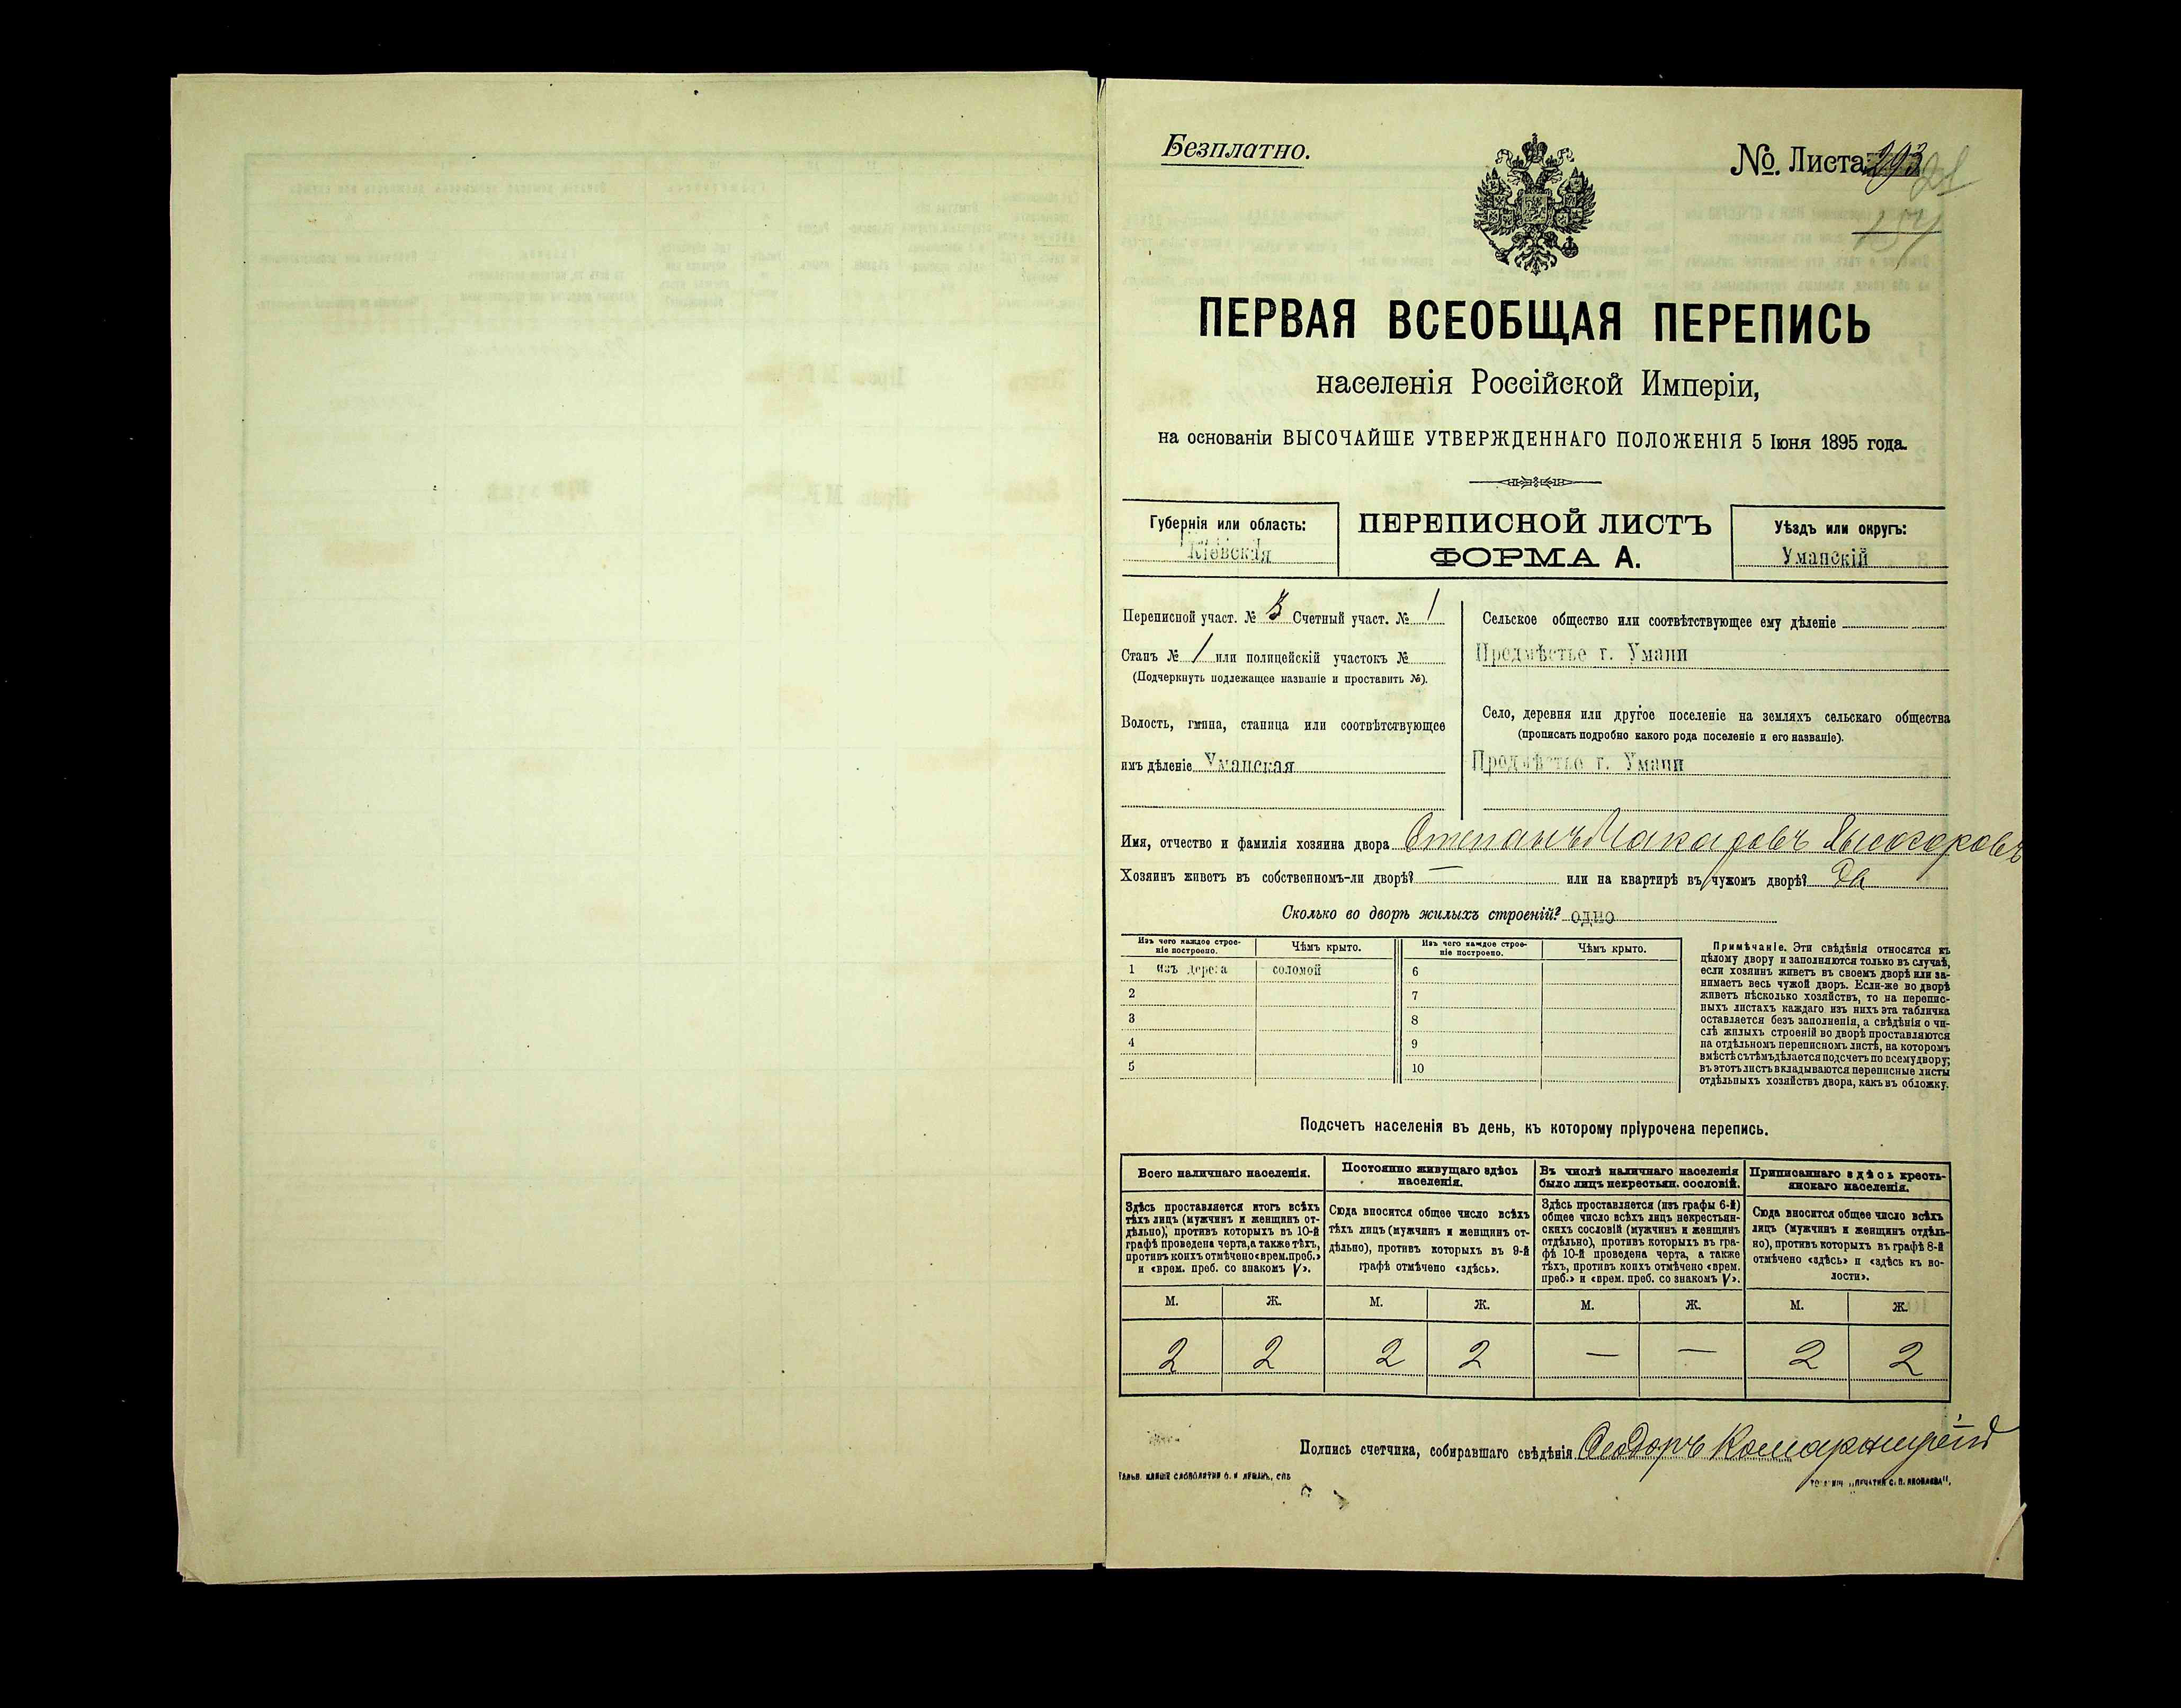 Безплатно.
№. Листа 293
ПЕРВАЯ ВСЕОБЩАЯ ПЕРЕПИСЬ
населенія Россійской Имперіи,
на основаніи ВЫСОЧАЙШЕ УТВЕРЖДЕННАГО ПОЛОЖЕНІЯ 5 Іюня 1895 года.
Губернія или область:
Кіевская
ПЕРЕПИСНОЙ ЛИСТЪ
ФОРМА А.
Уѣздъ или округъ:
Уманскій
Переписной участ. № 3 Счетный участ. № 1
Станъ № 1 или полицейскій участокъ №
(Подчеркнуть подлежащее названіе и проставить №).
Волость, гмина, станица или соотвѣтствующее
имъ дѣленіе Уманская
Сельское общество или соотвѣтствующее ему дѣленіе
Предмѣстье г. Умани
Село, деревня или другое поселеніе на земляхъ сельскаго общества
(прописать подробно какого рода поселеніе и его названіе).
Предмѣстье г. Умани
Имя, отчество и фамилія хозяина двора Степанъ Макаровъ
Хозяинъ живетъ въ собственномъ-ли дворѣ? — или на квартирѣ въ чужомъ дворѣ? Да
Сколько во дворѣ жилыхъ строеній? одно
Изъ чего каждое строе-
ніе построено.
Чѣмъ крыто.
Изъ чего каждое строе-
ніе построено.
Чѣмъ крыто.
1 изъ дерева соломой 6
2 7
3 8
4 9
5 10
Примѣчаніе. Эти свѣдѣнія относятся къ
цѣлому двору и заполняются только въ случаѣ,
если хозяинъ живетъ въ своемъ дворѣ или за-
нимаетъ весь чужой дворъ. Если-же во дворѣ
живетъ нѣсколько хозяйствъ, то на перепис-
ныхъ листахъ каждаго изъ нихъ эта табличка
оставляется безъ заполненія, а свѣдѣнія о чи-
слѣ жилыхъ строеній во дворѣ проставляются
на отдѣльномъ переписномъ листѣ, на которомъ
вмѣстѣ съ тѣмъ дѣлается подсчетъ по всему двору;
въ этотъ листъ вкладываются переписные листы
отдѣльныхъ хозяйствъ двора, какъ въ обложку.
Подсчетъ населенія въ день, къ которому пріурочена перепись.
Всего наличнаго населенія.
Здѣсь проставляется итогъ всѣхъ
тѣхъ лицъ (мужчинъ и женщинъ от-
дѣльно), противъ которыхъ въ 10-й
графѣ проведена черта, а также тѣхъ,
противъ коихъ отмѣчено «врем. проб.»
и «врем. преб. со знакомъ V».
Постоянно живущаго здѣсь
населенія.
Сюда вносится общее число всѣхъ
тѣхъ лицъ (мужчинъ и женщинъ от-
дѣльно), противъ которыхъ въ 9-й
графѣ отмѣчено «здѣсь».
Въ числѣ наличнаго населенія
было лицъ некрестьян. сословій.
Здѣсь проставляется (изъ графы 6-й)
общее число всѣхъ лицъ некрестьян-
скихъ сословій (мужчинъ и женщинъ
отдѣльно), противъ которыхъ въ гра-
фѣ 10-й проведена черта, а также
тѣхъ, противъ коихъ отмѣчено «врем.
преб.» и «врем. преб. со знакомъ V».
Приписаннаго здѣсь кресть-
янскаго населенія.
Сюда вносится общее число всѣхъ
лицъ (мужчинъ и женщинъ отдѣль-
но), противъ которыхъ въ графѣ 8-й
отмѣчено «здѣсь» и «здѣсь къ во-
лости».
М. Ж. М. Ж. М. Ж. М. Ж.
2 2 2 2 — — 2 2
Подпись счетчика, собиравшаго свѣдѣнія Ѳеодоръ